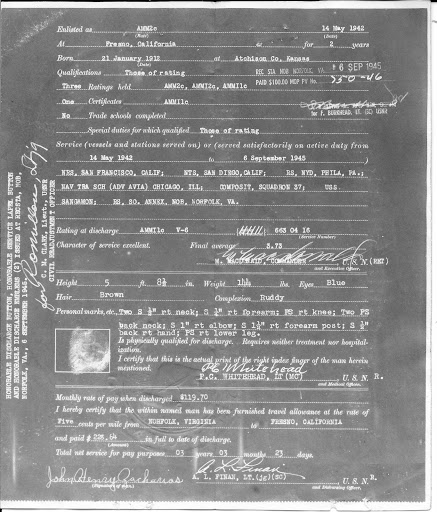 Enlisted as AMM2c 14 May 1942
(Rate) (Date)
At Fresno, California as for 2 years
Born 21 January 1912 at Atchison Co. Kansas
(Date)
Qualifications Those of rating
REC STA NOB NORFOLK, VA. 6 SEP 1945
PAID $100.00 MOP PY
350-46
Three Ratings held AMM2c, AMM2c, AMM1c
One Certificates AMM1c
for P. BURKHEAD, LT. USNR
No Trade schools completed
Special duties for which qualified Those of rating
Service (vessels and stations served on) or (served satisfactorily on active duty from
14 May 1942 to 6 September 1945
NRS, SAN FRANCISCO, CALIF; NTS, SAN DIEGO, CALIF; RS, NYD, PHILA, PA.;
NAV TRA SCH (ADV AVIA) CHICAGO, ILL; COMPOSIT, SQUADRON 37; USS
SANGAMON; RS, SO. ANNEX, NOB, NORFOLK, VA.
Rating at discharge AMM1c V-6 665 04 16
(Service Number)
Character of service excellent. Final average 3.73
M. MACDONALD, COMMANDER U. S. N. (RET)
and Executive Officer.
Height 5 ft. 8½ in. Weight lbs. Eyes Blue
Hair Brown Complexion Ruddy
Personal marks, etc. Two S ½" rt neck; S ½" rt forearm; PS rt knee; Two PS
back neck; S 1" rt elbow; S 1½" rt forearm post; S ½"
back rt hand; PS rt lower leg.
Is physically qualified for discharge. Requires neither treatment nor hospital-
ization.
I certify that this is the actual print of the right index finger of the man herein
mentioned.
P.G. Whitehead
P.G. WHITEHEAD, LT (MC) U. S. N. R.
and Medical Officer.
Monthly rate of pay when discharged $119.70
I hereby certify that the within named man has been furnished travel allowance at the rate of
Five cents per mile from NORFOLK, VIRGINIA to FRESNO, CALIFORNIA
and paid $ 228.64 in full to date of discharge.
(Amount)
Total net service for pay purposes 03 years 03 months 23 days.
John Henry Zacharias
(Signature of man)
A. L. Finan
A. L. FINAN, LT. (jg)(SC) U. S. N. R.
and Disbursing Officer.
HONORABLE DISCHARGE BUTTON, HONORABLE SERVICE LAPEL BUTTON
AND HONORABLE DISCHARGE EMBLEM (S) ISSUED AT RECSTA, NOB,
NORFOLK, VA., 6 SEPTEMBER 1945.
for
C. M. CLARK, Lieut., USNR
CIVIL READJUSTMENT OFFICER